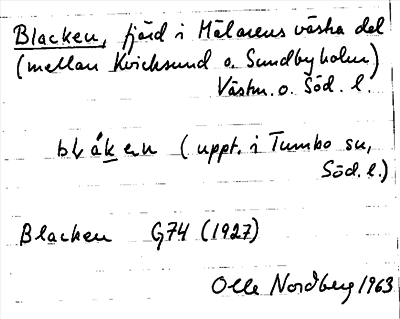 Blacken, fjärd i Mälarens västra del
(mellan Kvicksund o. Sundbyholm)
Västm. o. Söd. l.
blák̲en (uppt. i Tumbo sn,
Söd. l.)
Blacken G74 (1927)
Olle Nordberg 1963